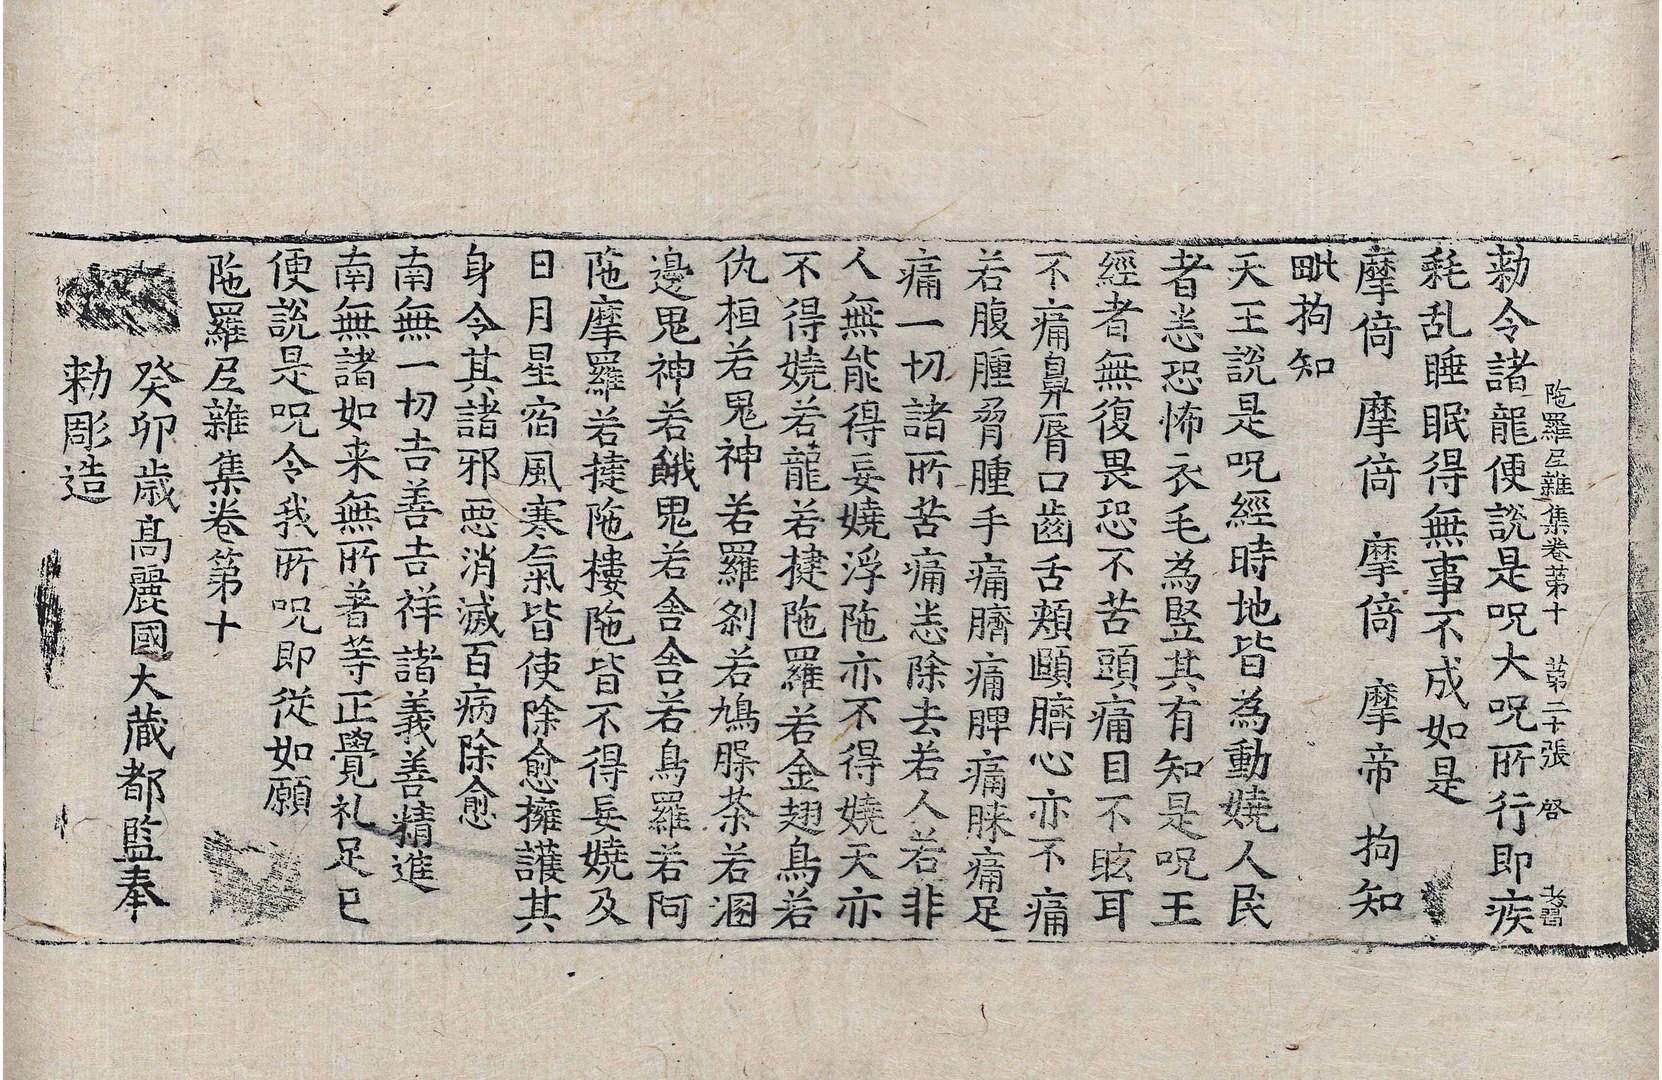 陁羅尼雜集卷第十　第二十張　啓　老習
勑令諸龍便說是呪大呪所行即疾
耗乱睡眠得無事不成如是
摩倚　摩倚　摩倚　摩帝　拘知
毗拘知
天王說是呪經時地皆為動嬈人民
者恙恐怖衣毛為竪其有知是呪王
經者無復畏恐不苦頭痛目不眩耳
不痛鼻脣口齒舌頰頤臍心亦不痛
若腹腫脅腫手痛臍痛脾痛脒痛足
痛一切諸所苦痛恙除去若人若非
人無能得妄嬈浮陁亦不得嬈天亦
不得嬈若龍若揵陁羅若金翅鳥若
仇桓若鬼神若羅剎若鳩睺荼若溷
邊鬼神若餓鬼若舍舍若鳥羅若阿
陁摩羅若揵陁樓陁皆不得妄嬈及
日月星宿風寒氣皆使除愈擁護其
身令其諸邪惡消滅百病除愈
南無一切吉善吉祥諸義善精進
南無諸如来無所著等正覺礼足已
便說是呪令我所呪即從如願
陁羅尼雜集卷第十
癸卯歲高麗國大藏都監奉
勑彫造